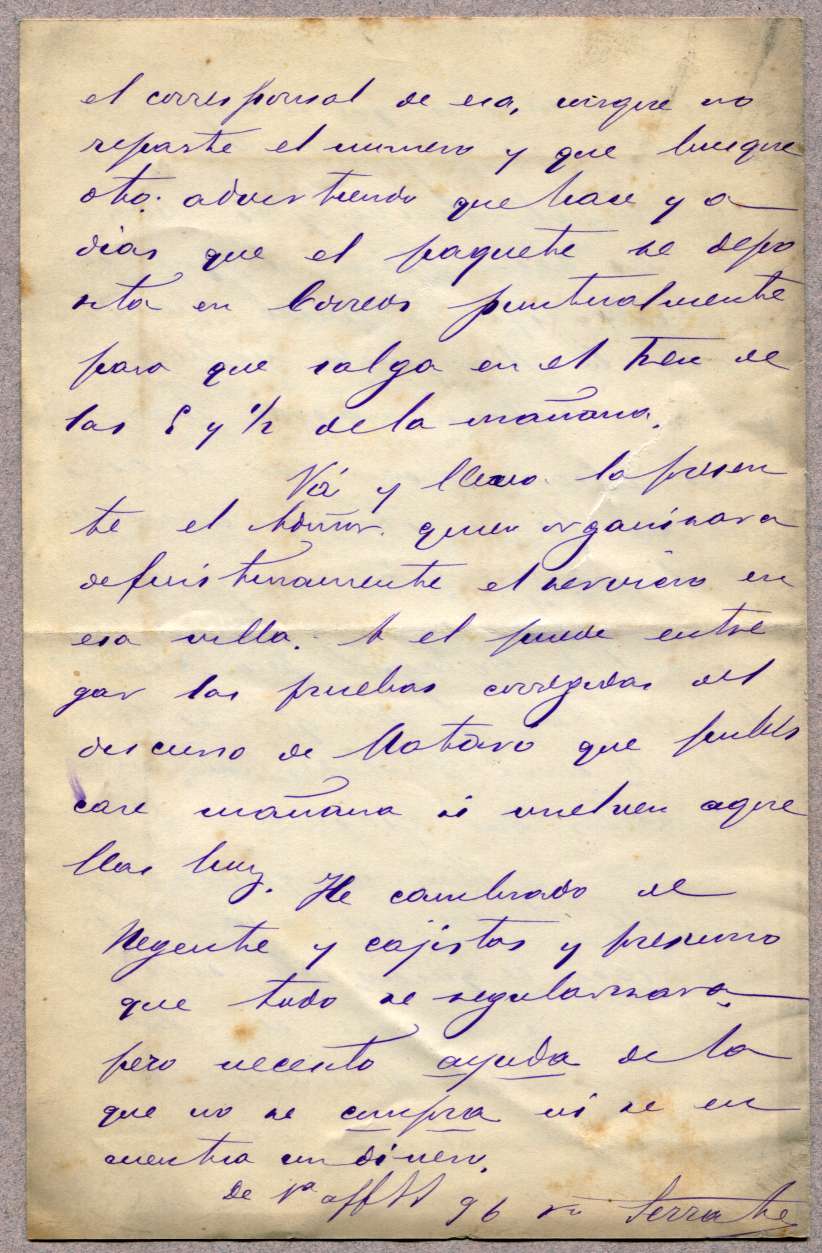 el corresponsal de esa, no
reparte el numero y que busque
otro. advirtiendo que hace ya
dias que el paquete se depo
sita en Correos puntualmente
para que salga en el tren de
las 5 y 1/2 de la mañana.
Vá y lleva la presen
te el quien organisara
definitivamente el servicio en
esa villa. A el puede entre
gar las pruebas corregidas del
discurso de Mataró que publi
care mañana si vuelven aque
llas hoy. He cambiado de
Regente y cajistas y presumo
que todo se regularisara
pero necesito ayuda de la
que no se compra ni se en
cuentra en dinero.
De Va aff SS